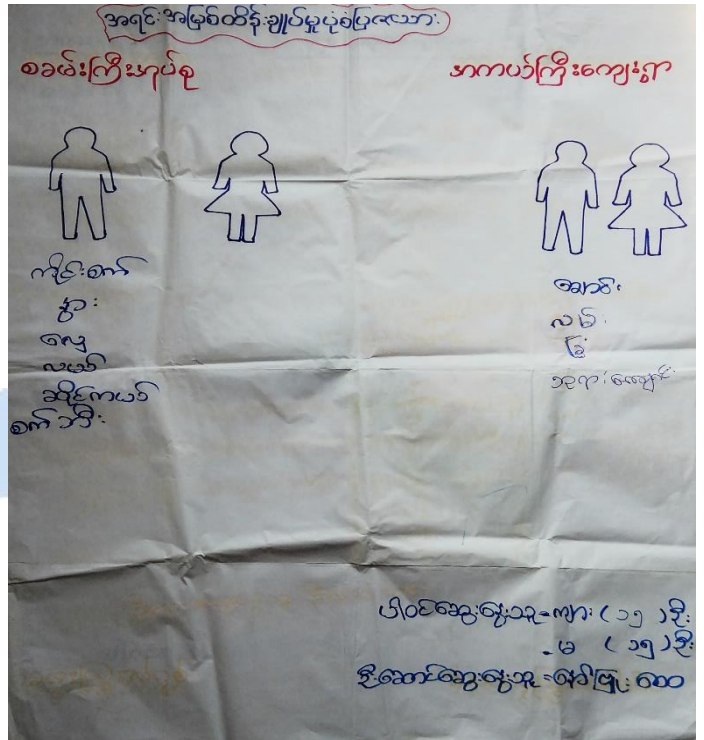 အရင်းအမြစ်ထိန်းချုပ်မှုပုံစံပြဇယား
စခမ်းကြီးအုပ်စု
အကယ်ကြီးကျေးရွာ
ကိုင်းစက်
နွား
လှေ
လယ်
ဆိုင်ကယ်
စက်ဘီး
ရောင်း
လမ်း
ခြံ
ဘုရားကျောင်း
ပါဝင်ဆွေးနွေးသူ = ကျား ( ၁၅ ) ဦး
- မ ( ၁၅ ) ဦး
ဦးဆောင်ဆွေးနွေးသူ = နော်ဖြူ